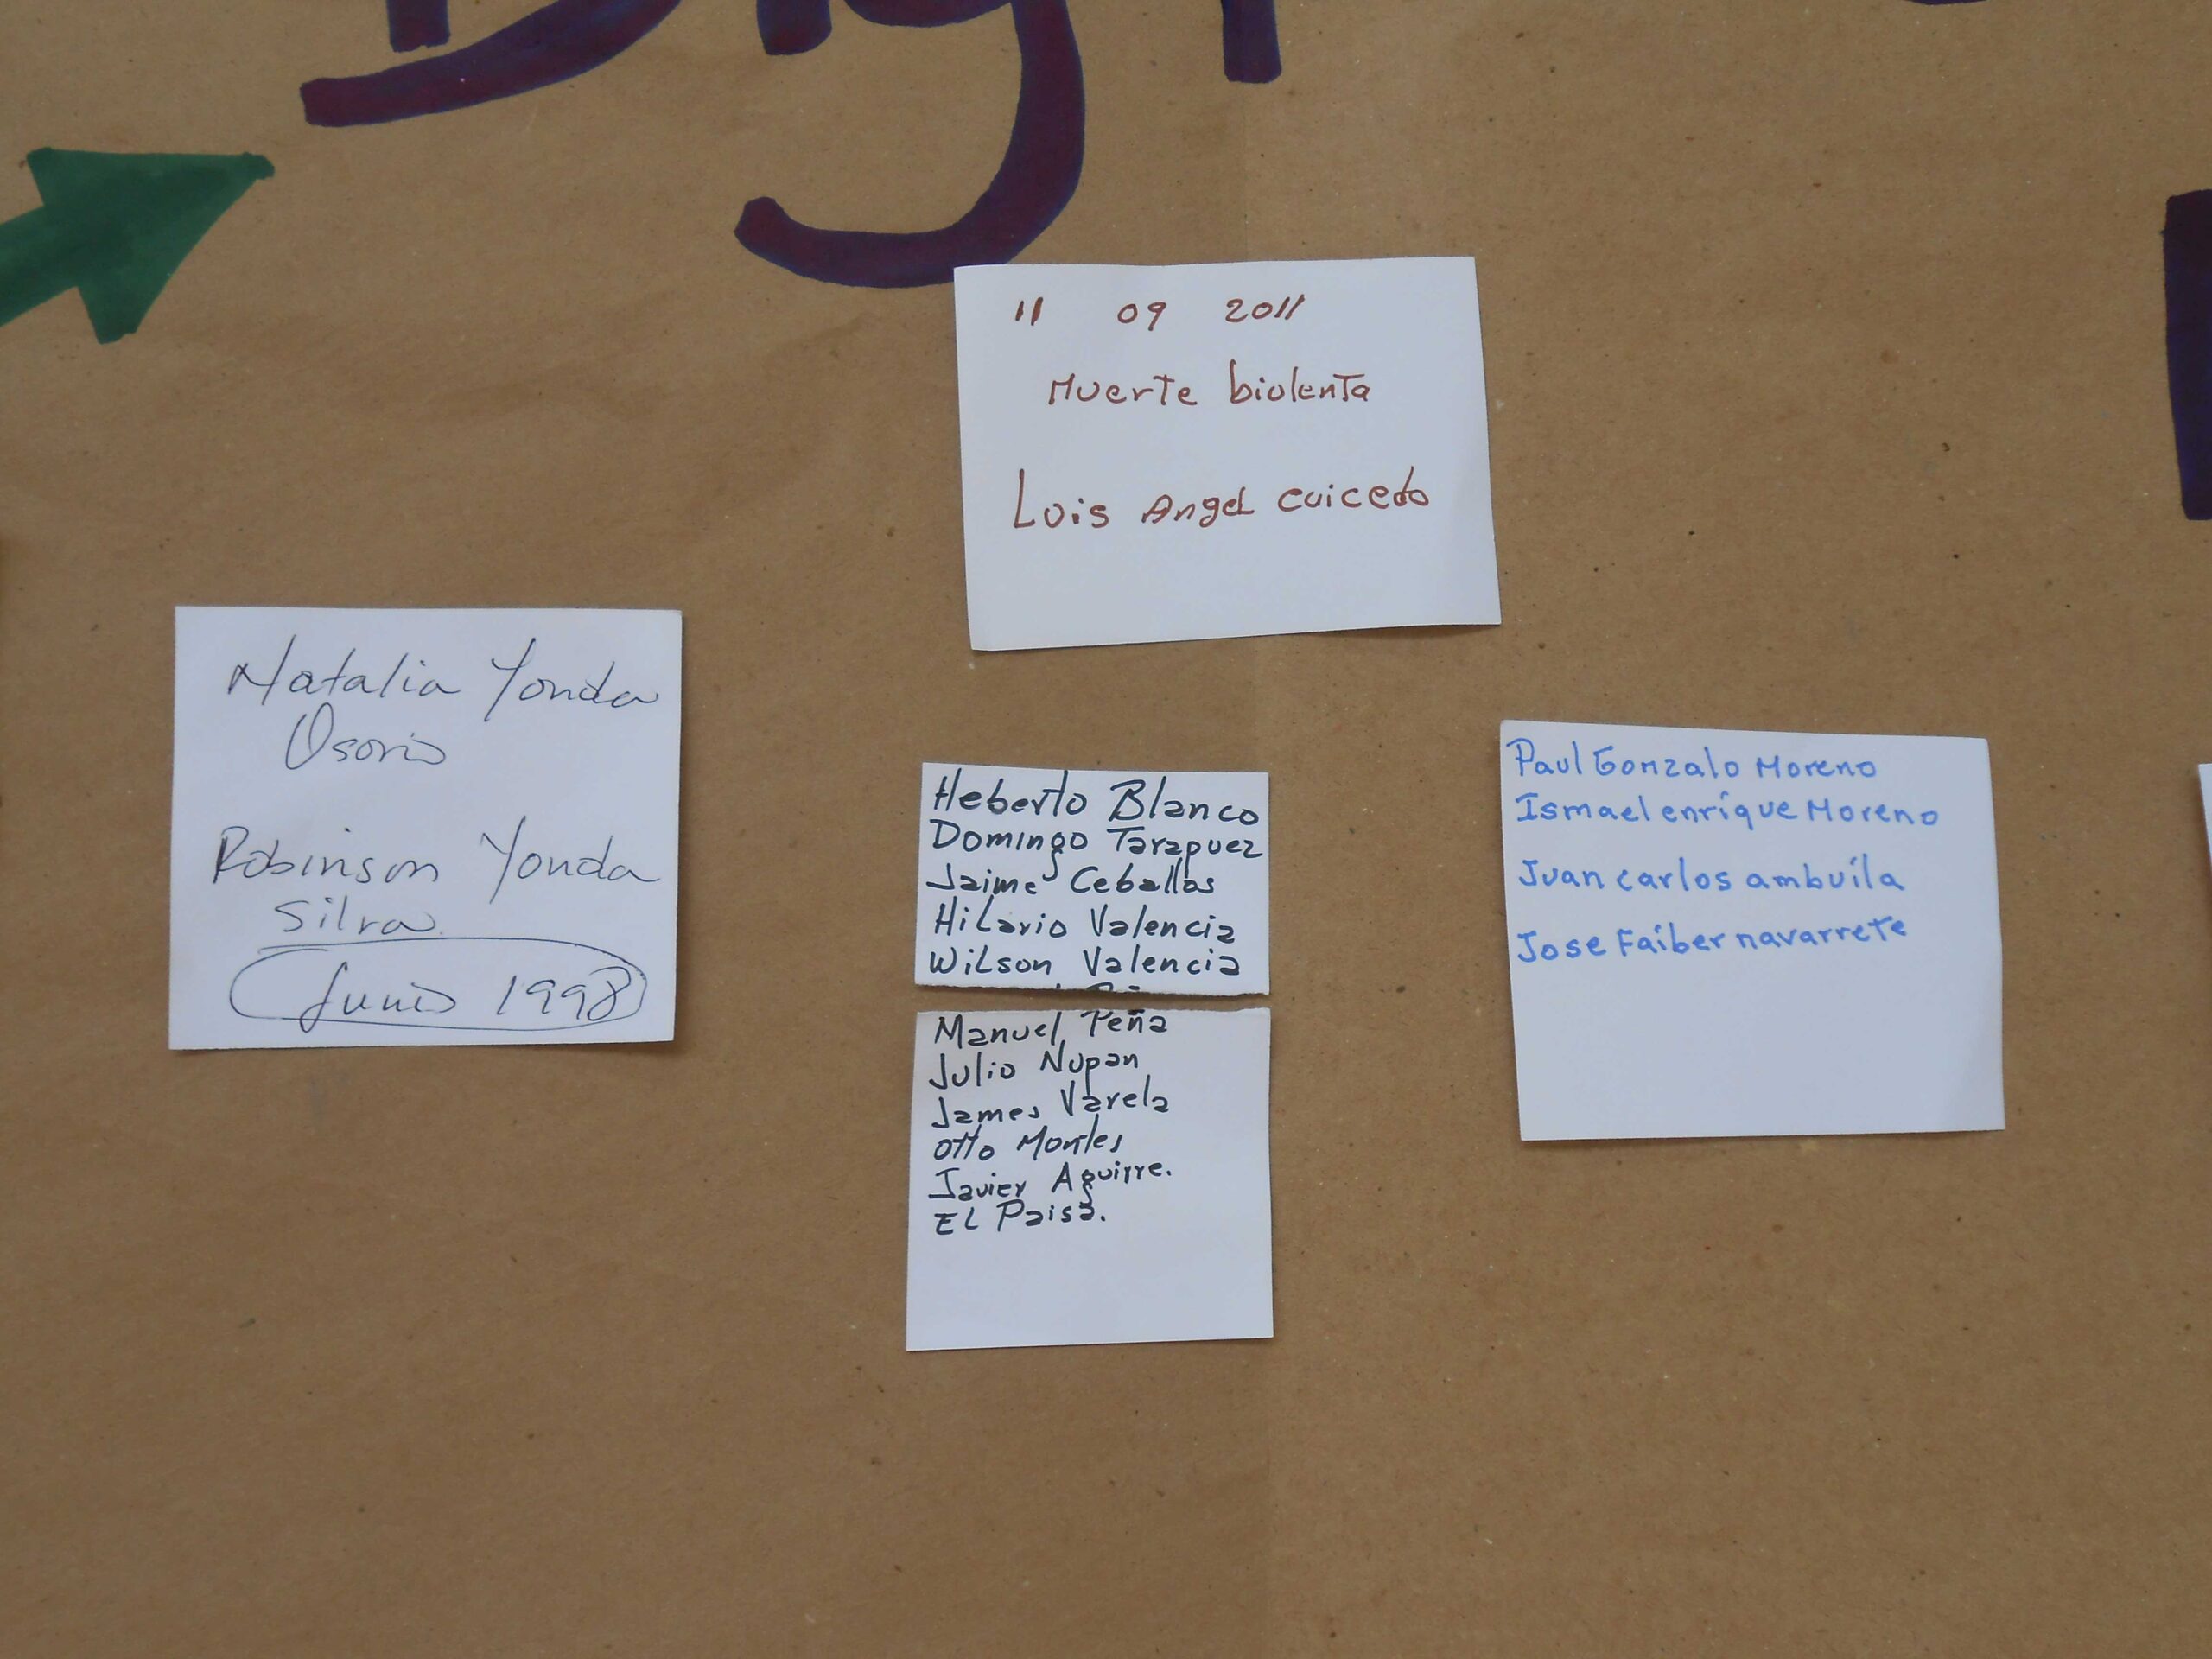 11 09 2011
Muerte biolenta
Luis Angel Caicedo
Natalia Yonda
Osorio
Robinson Yonda
Silva
Junio 1998
Heberto Blanco
Domingo Tarapuez
Jaime Ceballos
Hilario Valencia
Wilson Valencia
Manuel Peña
Julio Nupan
James Varela
Otto Montes
Javier Aguirre.
El Paisa.
Paul Gonzalo Moreno
Ismael enrique Moreno
Juan carlos ambuila
Jose Faiber navarrete